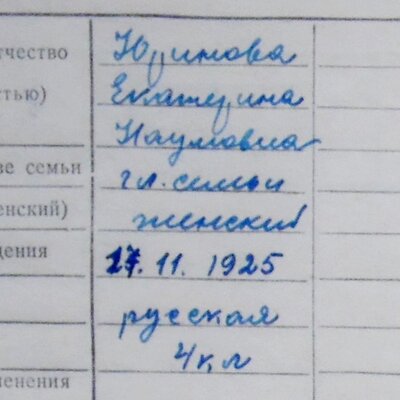 тчество Юдинова
стью) Екатерина
Наумовна
ве семьи гл. семьи
енский) женский
дения 17. 11. 1925
русская
4 кл
менения